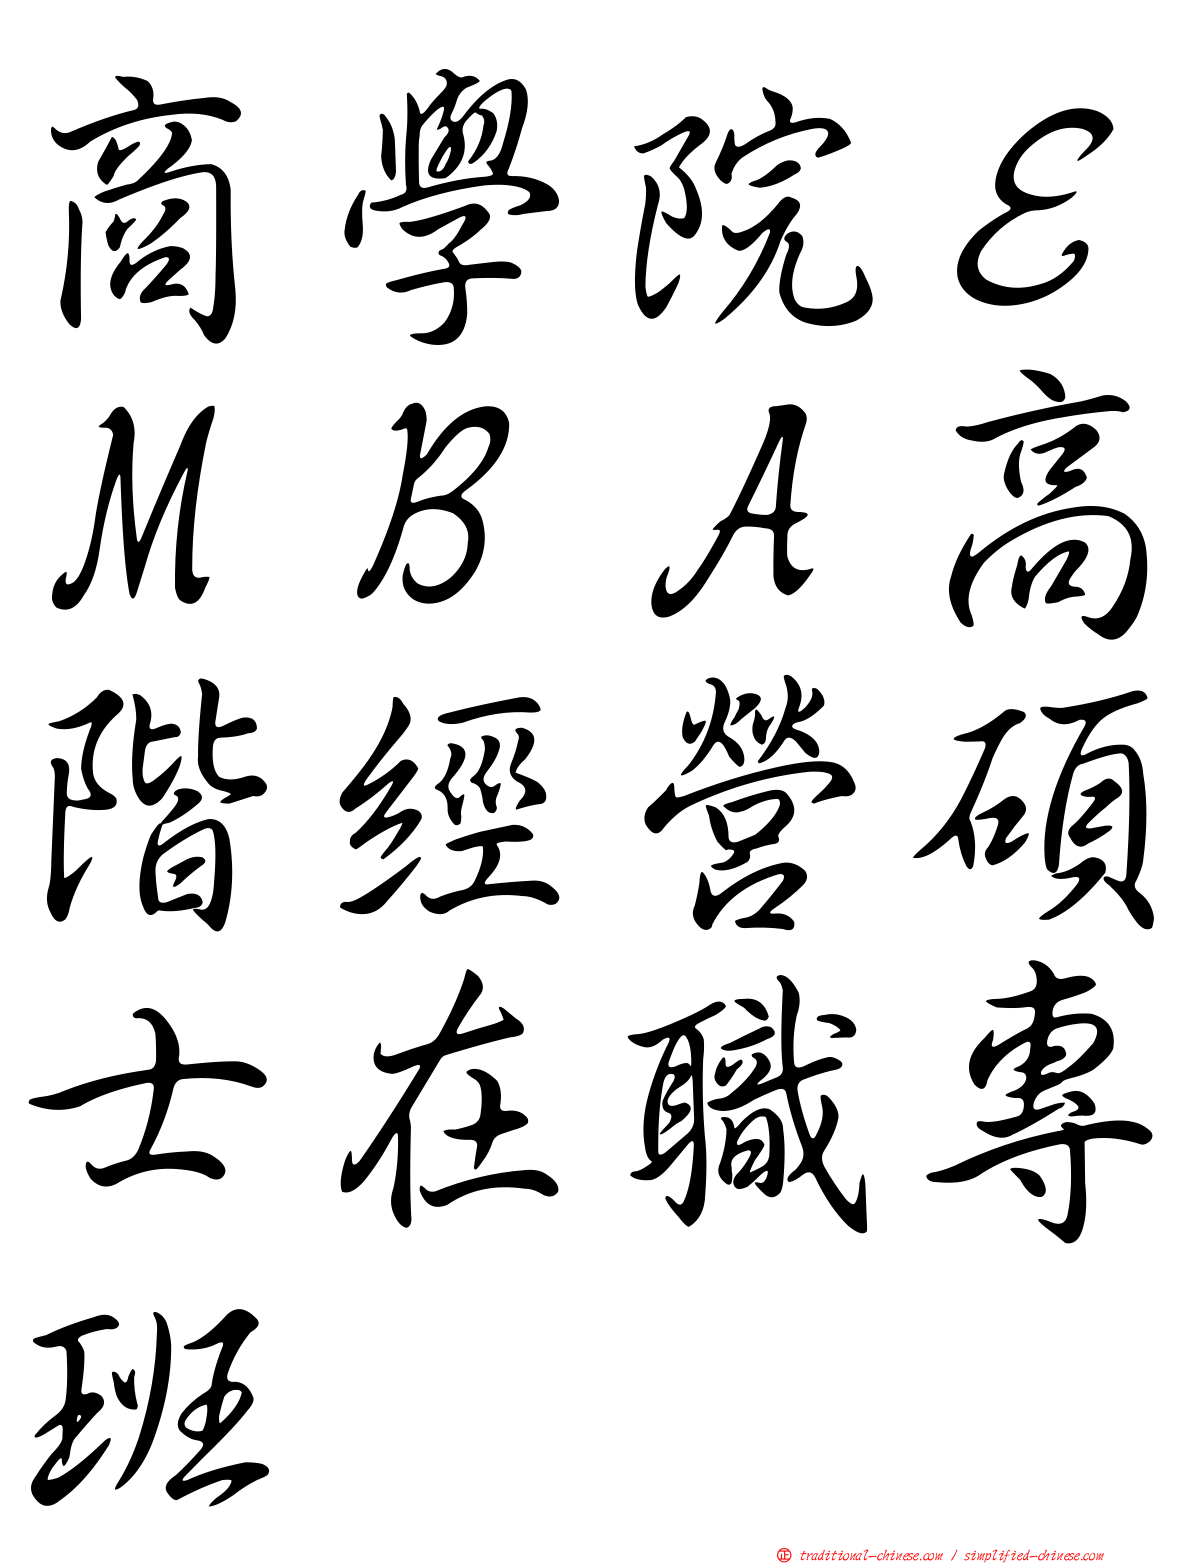 商學院E
MBA高
階經營碩
士在職專
班
正 traditional-chinese.com / simplified-chinese.com